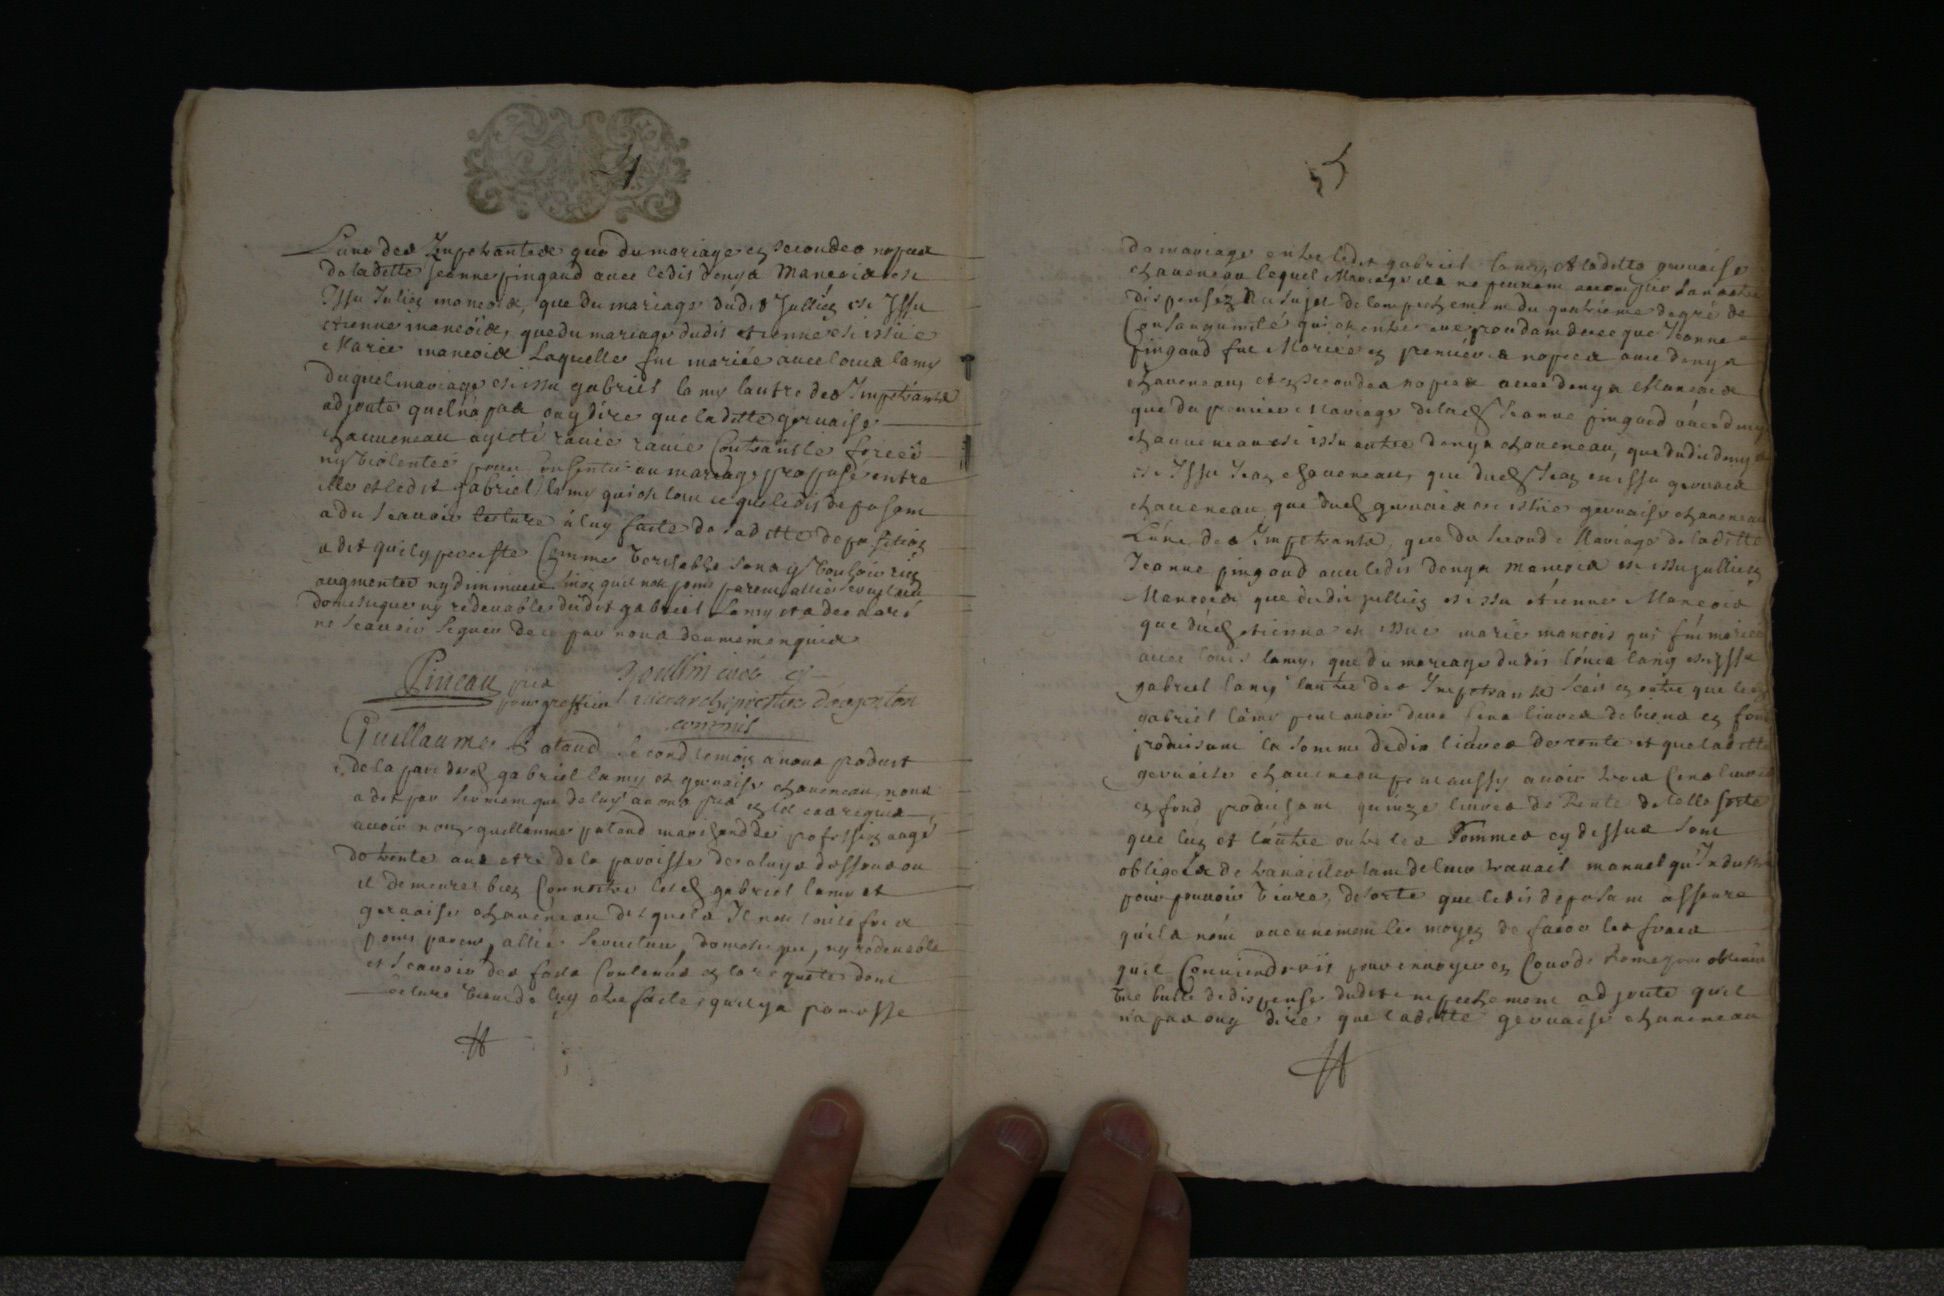 4
L'une des Impetrantes que du mariage en secondes nopces
de laditte Jeanne pingaud avec ledit denys Mancois est
Issu Julien mancois, que du mariage dudit Jullien est Issu
etienne mancois, que du mariage dudit etienne est issüe
Marie mancois Laquelle fut mariée avec louis lamy
Duquel mariage est issu gabriel lamy lautre des Impetrants
adjoute quel n'a pas ouy dire que laditte gervaise
chauveneau ayt eté ravie ravie Contrainte forcée
ny violentée pour au mariage proposé entre
elle et ledit gabriel lamy qui est tout ce que ledit deposant
a dit scavoir lecture à luy faite de saditte deposition
a dit quily persiste Comme veritable sans y vouloir rien
augmenter ny diminuer quil n'est point parent allié serviteur
domestique ny redevable dudit gabriel Lamy et a declaré
ne scavoir signer de ce par nous deuemement enquis
Pineau pris
pour greffier
commis
Guillaume Pataud second temoin a nous produit
de la part desd gabriel lamy et gervaise chauveneau, nous
a dit par serment que de luy avons pris en tel cas requis
avoir nom guillaume pataud marchand de profession aagé
de trente ans etre de la paroisse de cluys dessous ou
il demeure bien Connoitre lesd gabriel lamy et
gervaise chauveneau desquels Il n'est toute fois
point parent, allié serviteur, domestique, ny redevable
et scavoir des faits Contenus en la requete dont
lecture vient de luy etre faite, quil y a promesse
5
de mariage entre ledit gabriel lamy, et laditte gervaise
chauveneau lequel Mariage ils ne peuvent accomplir sans etre
dispensez au sujet de lempechement du quatrième degré de
Consanguinité qui est entre eux procedant de ce que Jeanne
pingaud fut Mariée en premières nopces avec denys
chauveneau, et en secondes nopces avec denys Mancois
que du premier Mariage de lad Jeanne pingaud avec denys
chauveneau est issu autre denys chauveneau, que dudit denys
est Issu Jean chauveneau, que dud Jean est issu gervais
chauveneau que dud gervais est issüe gervaise chauveneau
L'une des Impetrants, que du second Mariage de laditte
Jeanne pingaud avec ledit denys mancois est issu jullien
Mancois que dudit jullien est issu etienne Mancois
que dud etienne est issue marie mancois qui fut mariée
avec louis lamy, que du mariage dudit louis lamy est issu
gabriel lamy lautre des Impetrants scait en outre que led
gabriel lamy peut avoir deux cens livres de biens en fond
produisant la somme de dix livres de rente et que laditte
gervaise chauveneau peut aussy avoir trois Cens livres
en fond produisant quinze livres de Rente de telle sorte
que lun et l'autre outre les sommes cy dessus sont
obligés de travailler tant de leur travail manuel qu'Industrie
pour pouvoir vivre, de sorte que ledit deposant assure
qu'ils n'ont aucunement les moyens de faire les frais
quil Conviendroit pour envoyer en Cour de Rome pour obtenir
une bulle de dispense dudit empechement adjoute quil
n'a pas ouy dire que laditte gervaise chauveneau